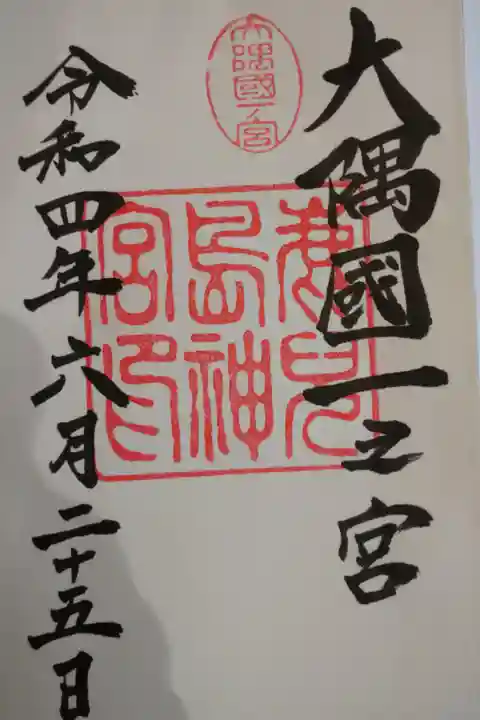 大隅國一之宮
大隅國一宮
鹿児島神宮印
令和四年六月二十五日